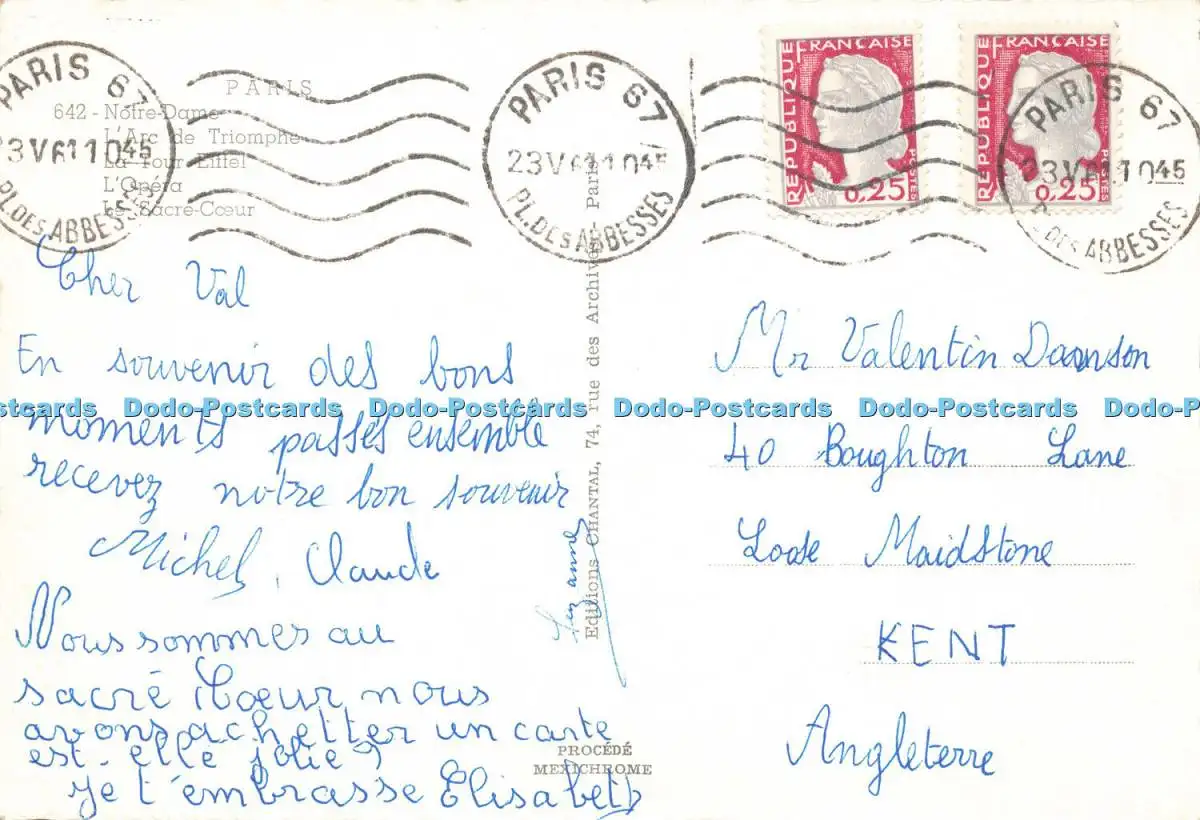 PARIS
642 - Notre-Dame
L'Arc de Triomphe
La Tour Eiffel
L'Opéra
Le Sacre-Cœur
PARIS 67
23 V 61 1045
PL. DES ABBESSES
PARIS 67
23 V 61 1045
PL. DES ABBESSES
REPUBLIQUE FRANÇAISE
0,25 POSTES
REPUBLIQUE FRANÇAISE
0,25 POSTES
PARIS 67
23 V 61 1045
PL. DES ABBESSES
Cher Val
En souvenir des bons
moments passés ensemble
recevez notre bon souvenir
Michel, Claude
Nous sommes au
sacré Coeur nous
avons achetter un carte
est-elle jolie?
je t'embrasse Elisabeth
Editions CHANTAL, 74, rue des Archives - Paris
PROCÉDÉ
MEXICHROME
Mr Valentin
40 Boughton Lane
Loose Maidstone
KENT
Angleterre
Dodo-Postcards Dodo-Postcards Dodo-Postcards Dodo-Postcards